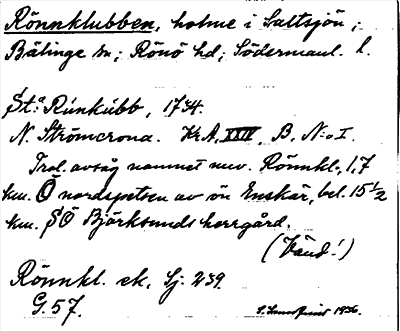 Rönnklubben, holme i Saltsjön;
Bälinge sn; Rönö hd; Södermanl. l.
St:a Rünkübb, 1734.
N. Strömcrona. Kr.A. XXIV, B, N:o I.
Trol. avsåg namnet nuv. Rönnkl., 1,7
km. Ö nordspetsen av ön Enskär, bel. 15 1/2
km. SÖ Björksunds herrgård.
(Vänd!)
Rönnkl. ek, Sj: 239.
G. 57.
1936.